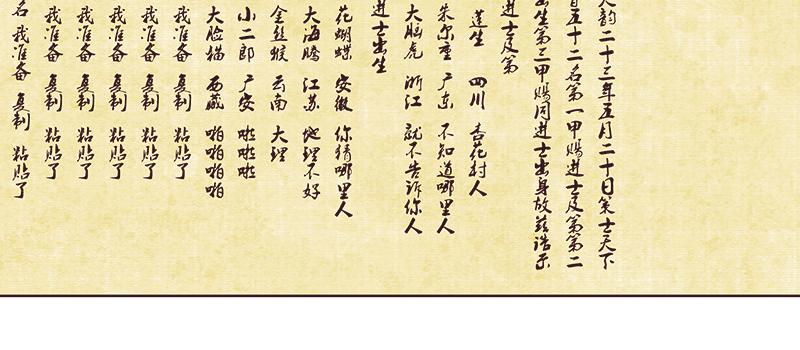 天韵二十三年五月二十日策士天下
百五十二名第一甲赐进士及第第二
出生第三甲赐同进士出身故兹诰示
进士及第
莲生 四川 杏花村人
朱尔重 广东 不知道哪里人
大脑虎 浙江 就不告诉你人
进士出生
花蝴蝶 安徽 你猜哪里人
大海腾 江苏 地理不好
金丝猴 云南 大理
小二郎 广安 啦啦啦
大脸猫 西藏 啪啪啪啪
我准备 复制 粘贴了
我准备 复制 粘贴了
我准备 复制 粘贴了
我准备 复制 粘贴了
我准备 复制 粘贴了
名 我准备 复制 粘贴了